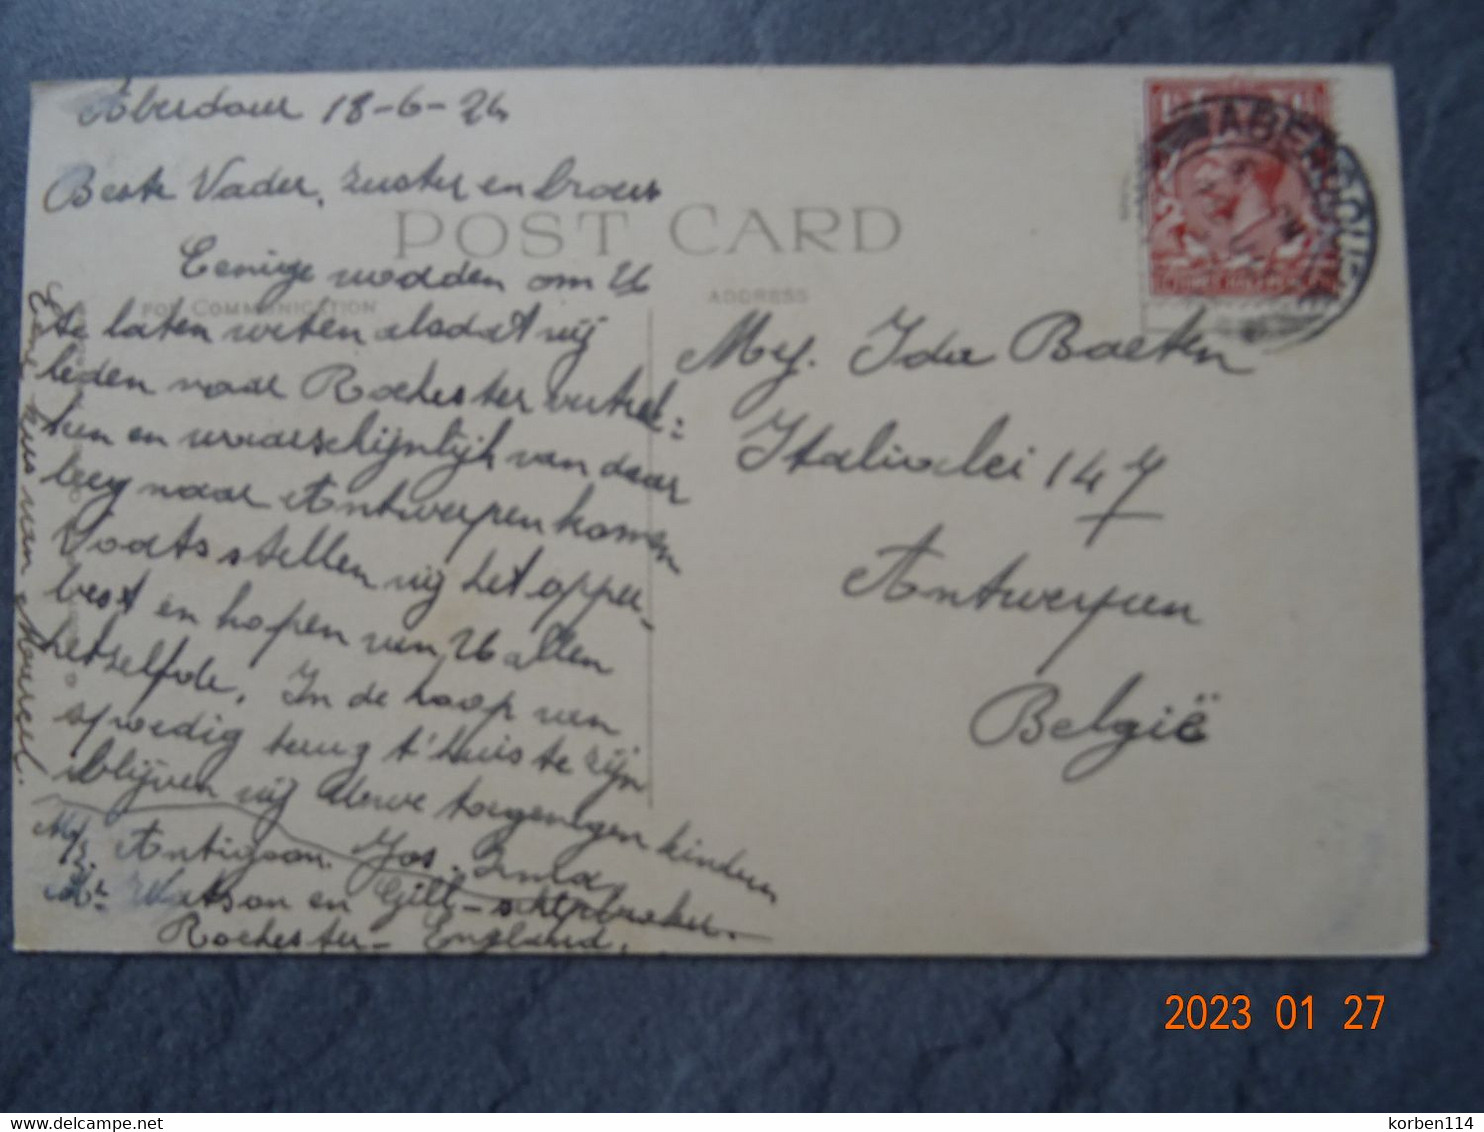 Aberdour 18-6-26
Beste Vader, zuster en broers
POST CARD
Eenige wodden om U
FOR COMMUNICATION
ADDRESS
te laten weten alsdat wij
heden naar Rochester vertrek=
ken en waarschijnlijk van daar
leeg naar Antwerpen komen
Voorts stellen wij het opper-
best en hopen van U allen
hetzelfde. In de hoop van
spoedig terug t'huis te zijn
blijven wij Uwe toegenegen kinderen
Jos. Irma
M/S. Antigoon
Mr Watson en Gill - shipbroker.
Rochester - England.
Eene kus van Marcel.
Mej. Ida Baeten
Italielei 147
Antwerpen
België
ABERDOUR
2023 01 27
delcampe.net
korben114